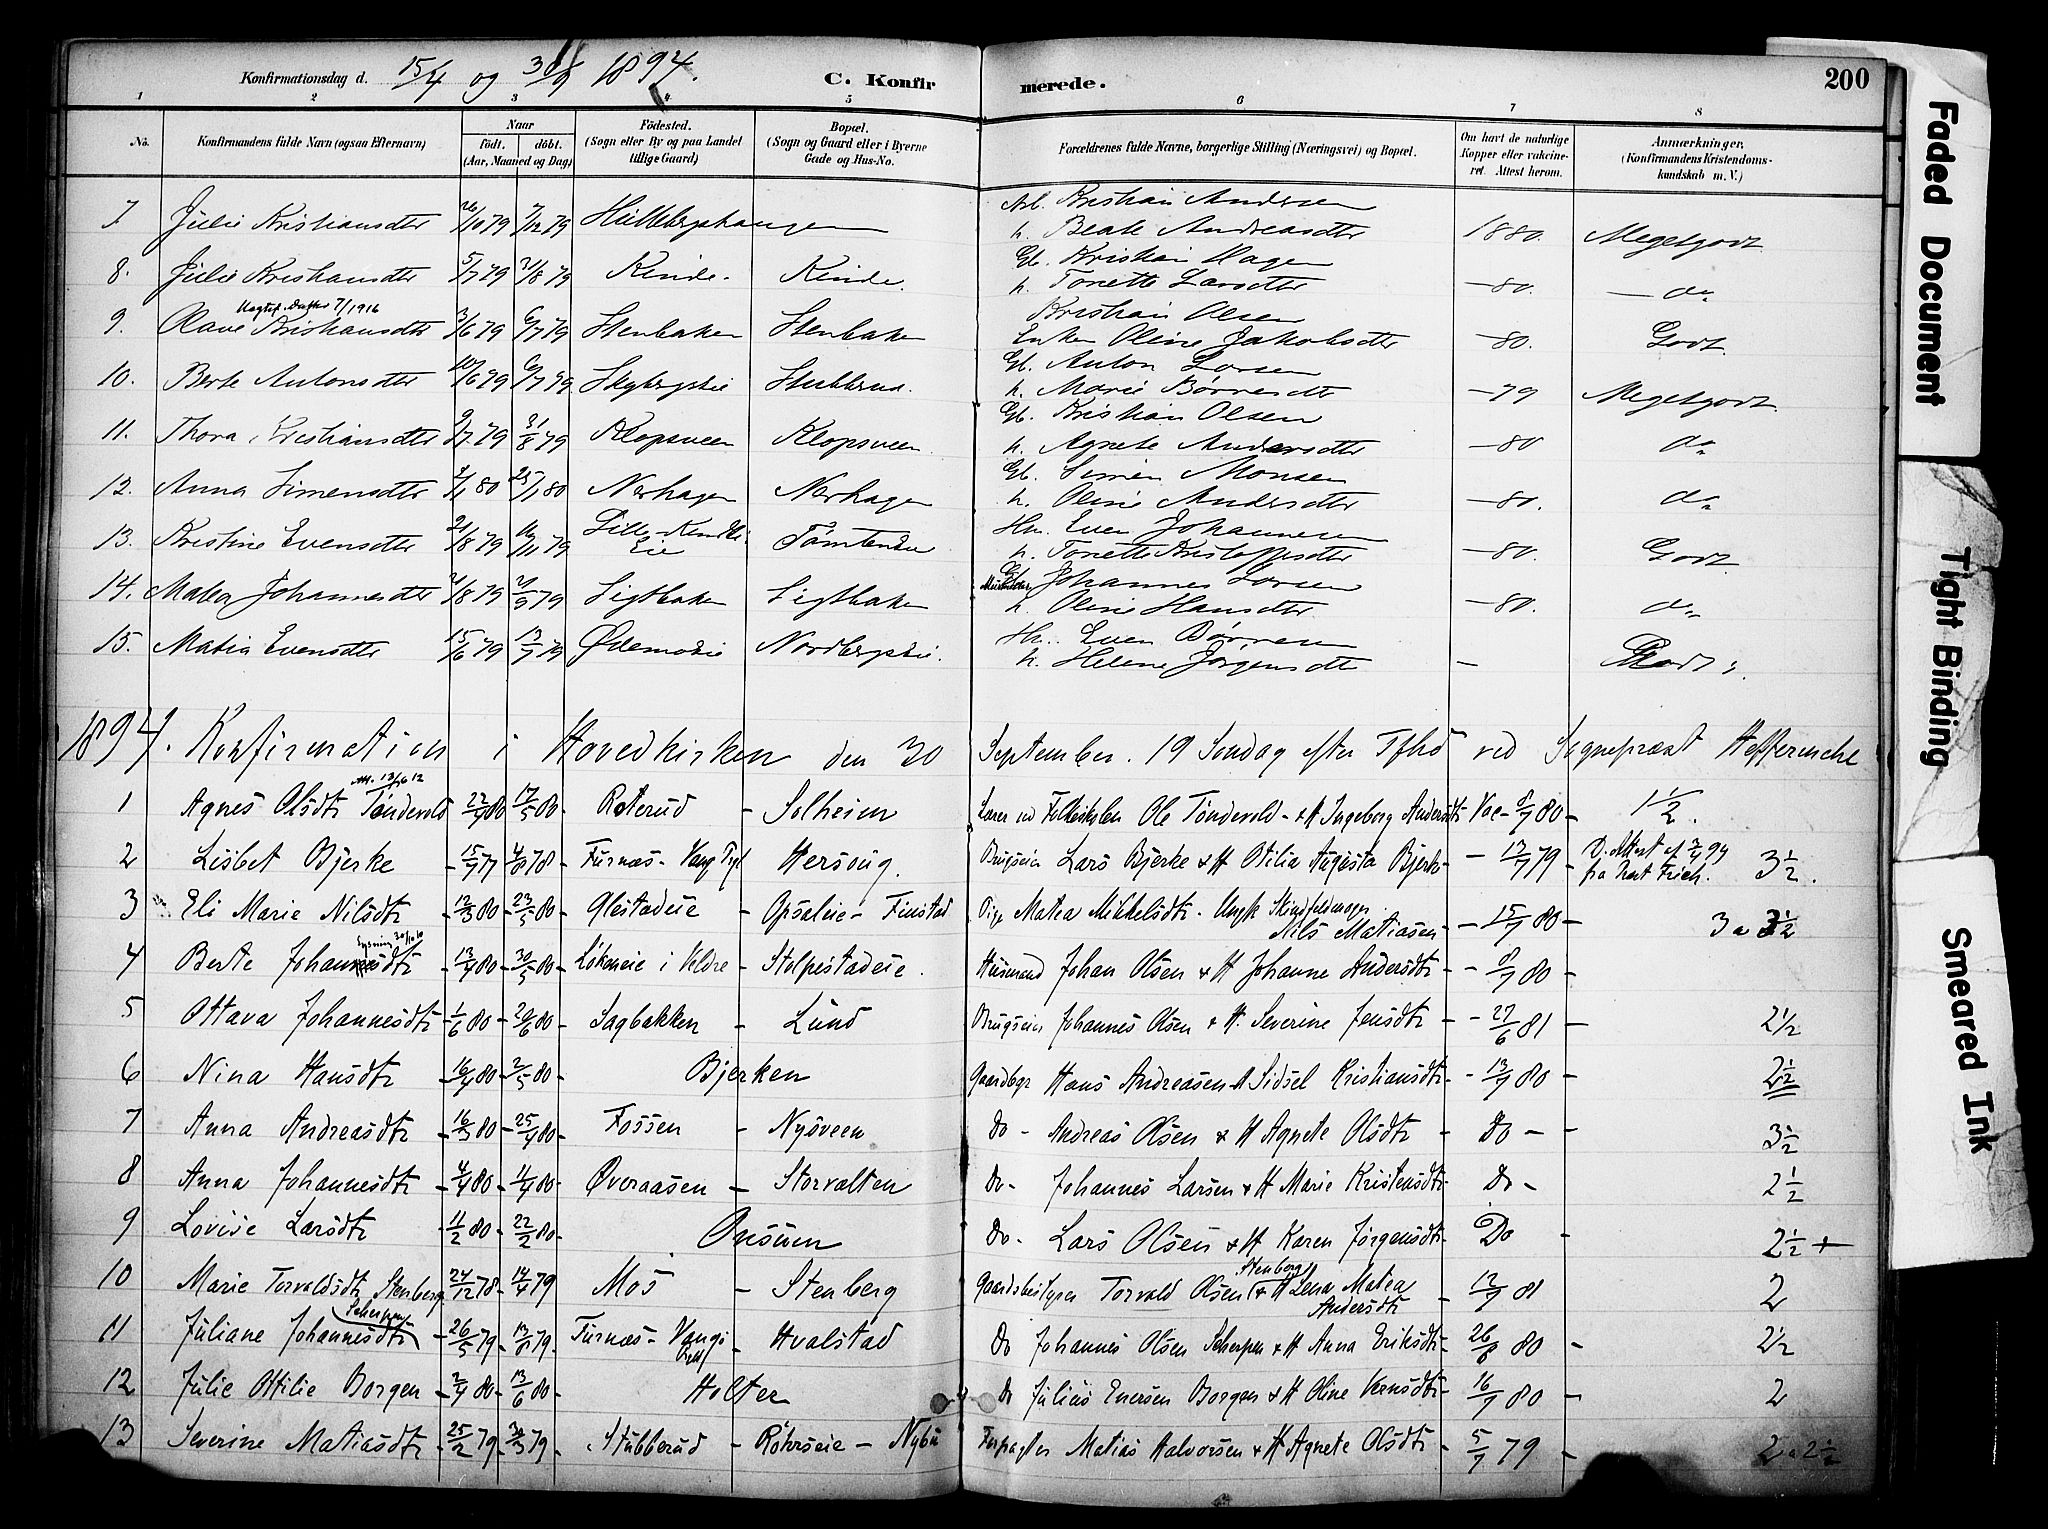 Konfirmationsdag d. 15/4 og 30/9 1894. C. Konfirmerede. 200
1 2 3 4 5 6 7 8
No. Konfirmandens fulde Navn (ogsaa Efternavn) Naar Födt. döbt. (Aar, Maaned og Dag) Födested. (Sogn eller By og paa Landet tillige Gaard) Bopæl. (Sogn og Gaard eller i Byerne Gade og Hus-No. Forældrenes fulde Navne, borgerlige Stilling (Næringsvei) og Bopæl. Om havt de naturlige Kopper eller vakcineret. Attest herom. Anmærkninger. (Konfirmandens Kristendomskundskab m. V.)
Arb. Kristian Andersen
7 Julie Kristiansdtr 26/10 79 7/12 79 h. Beate Andreasdtr 1880. Megetgodt
Gb. Kristian Hagen
8. Julie Kristiansdtr 5/7 79 31/8 79 Kinde. Kinde. h. Tonette Larsdtr — 80. — do
Datter 7/1916 Kristian Olsen
9. Kristiansdtr 3/6 79 6/7 79 Stenbaken Stenbaken Enken Oline Jakobsdtr — 80. Godt
Gb. Anton Larsen
10. Berte Antonsdtr 10/6 79 6/7 79 Stubberud. h. Marie Børresdtr — 79 Megetgodt
Gb. Kristian Olsen
11. Thora Kristiansdtr 9/7 79 31/8 79 Klopsveen Klopsveen. h. Agnete Andersdtr — 80 do
Gb. Simen Monsen
12. Anna Simensdtr 3/1 80 25/1 80 Nerhagen Nerhagen h. Oline Andersdtr — 80. do
Hm. Even Johannesen
13. Kristine Evensdtr 21/8 79 16/11 79 Lille Eie h. Tonette Kristoffersdtr — 80. Godt
Johannes Larsen
14. Matea Johannesdtr 2/8 79 21/9 79 Sigtbaken Sigtbaken h. Oline Hansdtr — 80. do
Hm. Even Børresen
15. Matia Evensdtr 15/6 79 13/7 79 Nordbergseie. h. Helene Jørgensdtr —
1894. Konfirmation i Hovedkirken den 30 September. 19 Søndag efter Tfhd ved Sognepræst Heffermehl
Att. 13/6 12
1 Agnes Olsdtr Tøndevold 22/4 80 17/5 80 - Roterud - Solheim Lærer ved Folkeskolen Ole Tøndevold - & H Ingeborg Andersdtr Vac - 8/7 80 - 1½.
2 Lisbet Bjerke - 15/9 77 - 4/8 78 - Furnæs - Vang Hersoug. Brugseier Lars Bjerke & H Otilia Augusta Bjerke - 17/7 79 V. Attest af 2/4 94 fra 3½.
3 Eli Marie Nilsdtr - 12/3 80 - 23/5 80 - Glestadeie - Opsaleie - Finstad Pige Matea Mikkelsdtr. Ungk
Nils Matiasen - - 15/7 80 - 3 a 3½
30/10 10
4 Berte Johansdtr - 13/4 80 - 30/5 80 - Løkeneie i Veldre - Stolpestadeie. Husmand Johan Olsen & H Johanne Andersdtr - - 8/7 80 -
5 Ottava Johannesdtr - 1/6 80 - 20/6 80 - Sagbakken - Lund Brugseier Johannes Olsen & H. Severine Jensdtr - - 27/6 81 - 2½
6 Nina Hansdtr - 16/4 80 - 2/5 80 - Bjerken Gaardbgr Hans Andreasen & H Sidsel Kristiansdtr - - 13/7 80 - 2½
7 Anna Andreasdtr - 16/3 80 - 25/4 80 - Fossen - Nysveen Do - Andreas Olsen & H Agnete Olsdtr - Do - 3½
8 Anna Johannesdtr - 4/4 80 - 4/4 80 - Øveraasen - Storvolten Do - Johannes Larsen & H Marie Kristensdtr - Do - 2½
9 Lovise Larsdtr - 11/2 80 - 22/2 80 - Onsuen Do - Lars Olsen & H Karen Jørgensdtr - Do - 2½ +
Stenberg
10 Marie Torvaldsdtr Stenberg 24/12 78 - 14/4 79 Mos - Stenberg Gaardsbestyrer Torvald Olsen & H Lena Matea Andersdtr - 12/7 81 2
Scherpen
11 Juliane Johannesdtr - 26/5 79 - 13/8 79 - Furnæs - Vangs - Hvalstad Do Johannes Olsen Scherpen & H Anna Eriksdtr - 26/8 80 - 2½
12 Julie Ottilie Borgen - 2/4 80 - 13/6 80 - Holter Do Julius Enersen Borgen & H Oline - 16/7 80 - 2
13 Severine Matiasdtr - 25/2 79 - 30/3 79 - Stubberud - Røhrseie - Nybu Forpagter Matias Halvorsen & H Agnete Olsdtr - 5/7 79 - 2 a 2½
Faded Document
Tight Binding
Smeared Ink